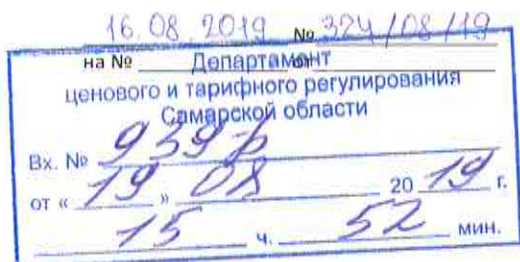 16.08.2019 № 324/08/19
на № от
Департамент
ценового и тарифного регулирования
Самарской области
Вх. № 939-р
от « 19 » 08 20 19 г.
15 ч. 52 мин.